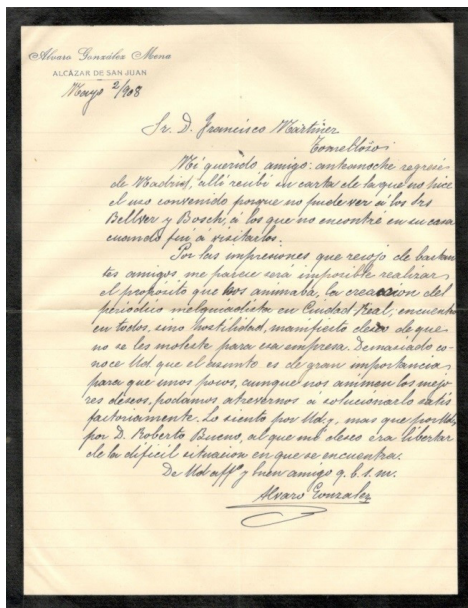 Alvaro González Mena
ALCÁZAR DE SAN JUAN
Mayo 2/908
Sr. D. Francisco Martinez
Tomelloso
Mi querido amigo: anteanoche regresé
de Madrid, allí recibí su carta de la que no hice
el uso convenido porque no pude ver á los Srs
Bellver y Bosch, á los que no encontré en su casa
cuando fuí á visitarlos.
Por las impresiones que recojo de bastan
tes amigos me parece será imposible realizar
el propósito que nos animaba, la creacion del
periódico melquiadista en Ciudad Real, encuentro
en todos, sino hostilidad, manifiesto deseo de que
no se les moleste para esa empresa. Demasiado co-
noce Ud. que el asunto es de gran importancia
para que unos pocos, aunque nos animen los mejo
res deseos, podamos atrevernos a solucionarlo satis
factoriamente. Lo siento por Ud. y, mas que por Ud,
por D. Roberto Bueno, al que mi deseo era libertar
de la difícil situacion en que se encuentra.
De Ud affº y buen amigo q. b. s. m.
Alvaro Gonzalez